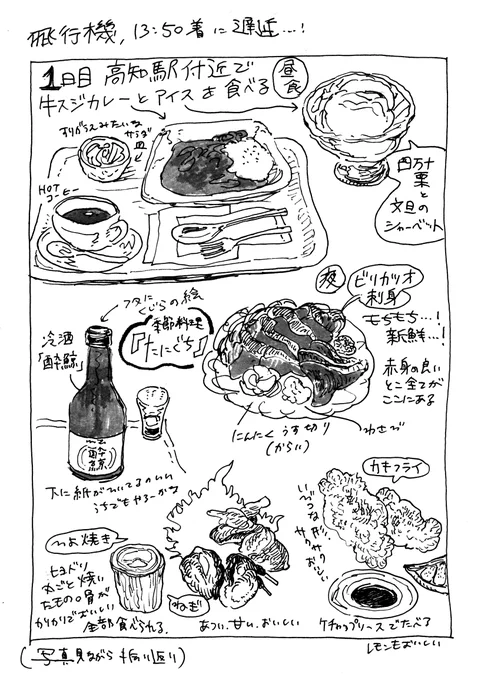 飛行機、13:50着に遅延…!
1日目 高知駅付近で
牛スジカレーとアイスを食べる
昼食
すりがらスみたいな
サラダ皿
HOT
コーヒー
四万十
栗と
文旦の
シャーベット
フタに
くじらの絵
冷酒
「酔鯨」
季節料理
『たにぐち』
夜
ビリカツオ
刺身
もちもち…!
新鮮…!
赤身の良い
とこ全てが
ここにある
にんにくうす切り
(からい)
わさび
酔鯨
下に紙がついてるのいい
うちでもやろーかな
カキフライ
サクサク
ケチャップソースでたべる
レモンもおいしい
丸ごと焼い
たもの。骨が
かりかりでおいしい
全部食べられる。
ねぎ
あつい、甘い、おいしい
(写真見ながら振り返り)